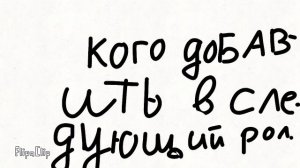 кого добав-
ить в сле-
дующий рол.
FlipaClip